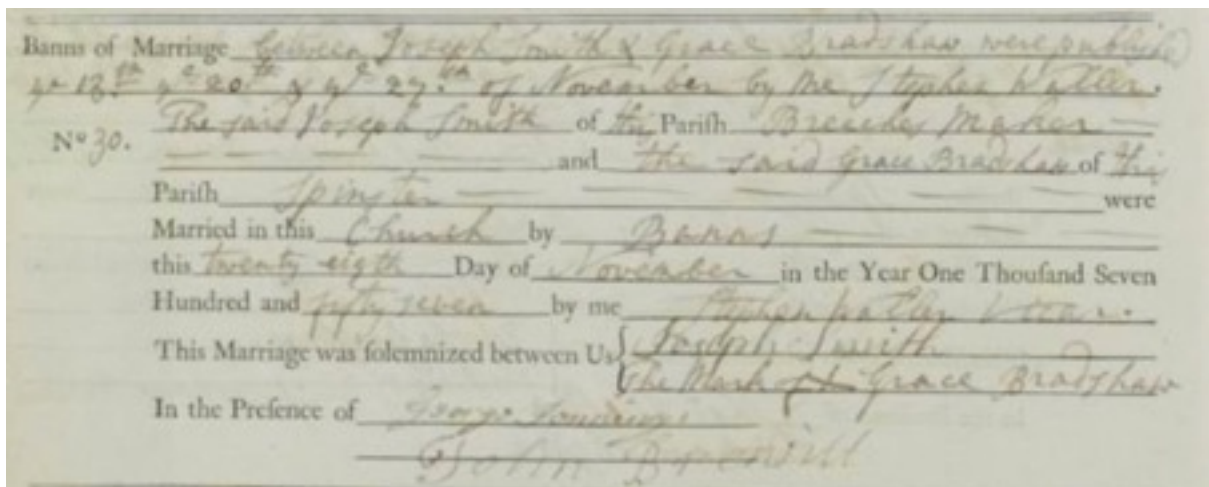 Banns of Marriage between Joseph Smith & Grace Bradshaw were publishd
ye 13.th ye 20th & ye 27.th of November by me Stephen Waller.
No 30. The said Joseph Smith of this Pariſh Breeches Maker
and the said Grace Bradshaw of this
Pariſh Spinster were
Married in this Church by Banns
this twenty eigth Day of November in the Year One Thouſand Seven
Hundred and fifty seven by me Stephen Waller Vicar.
This Marriage was ſolemnized between Us Joseph Smith
The Mark of Grace Bradshaw
In the Preſence of George
John